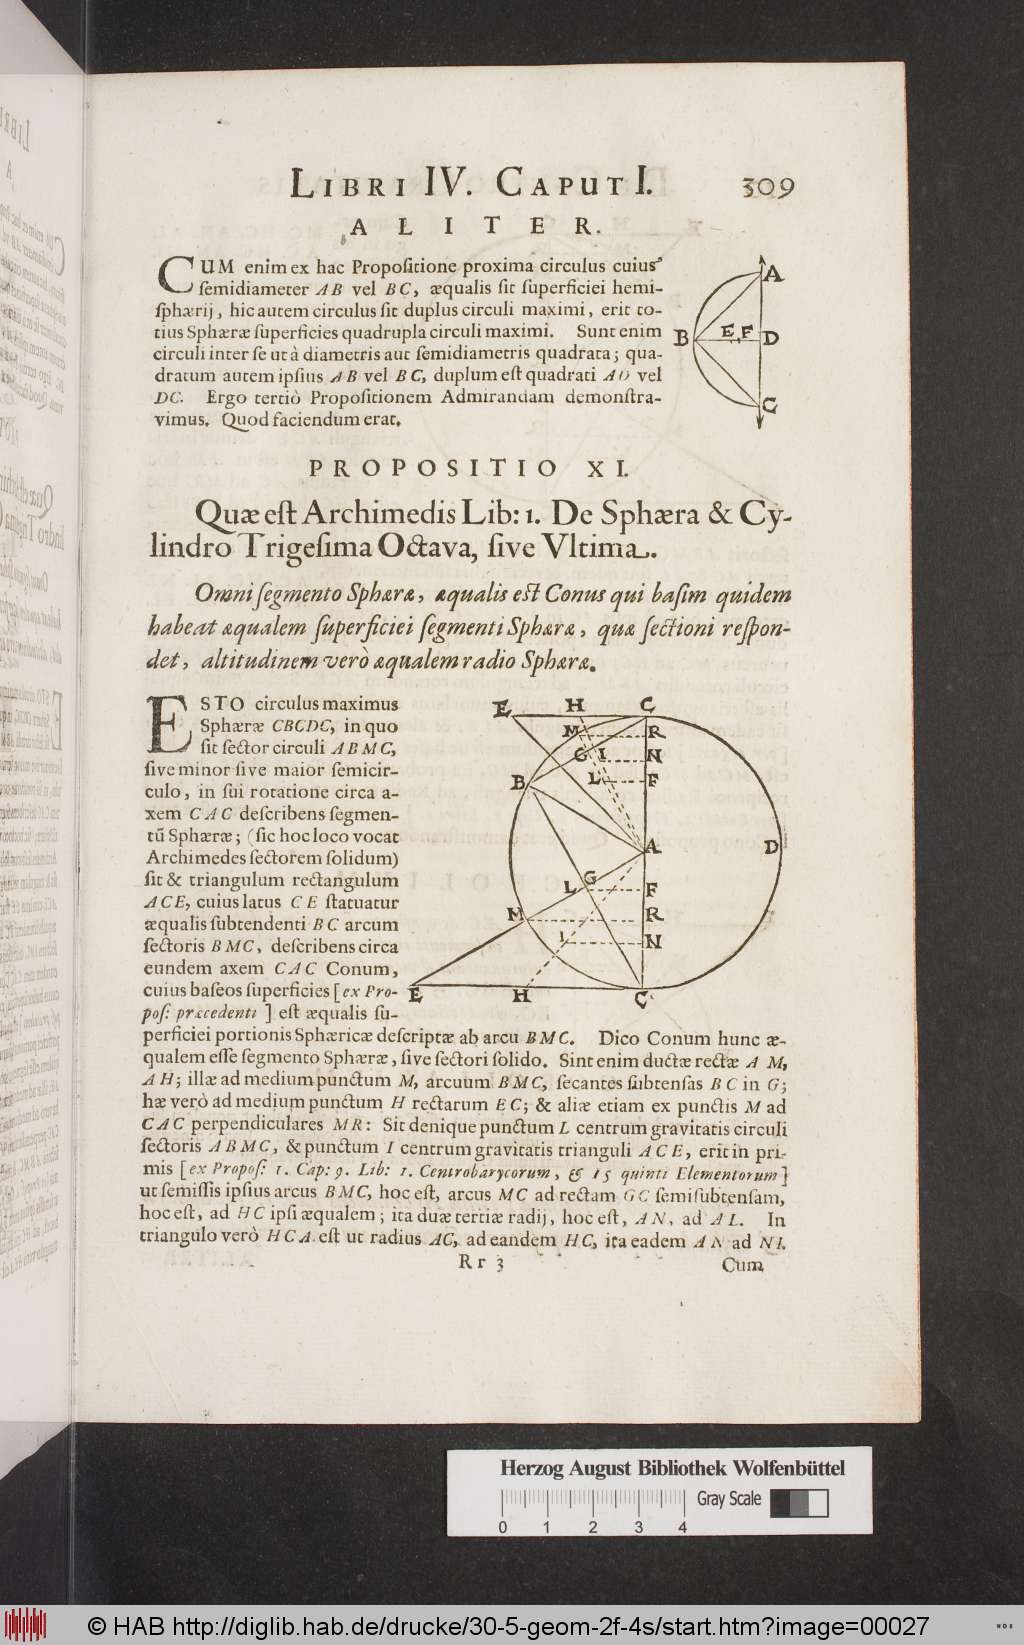 LIBRI IV. CAPUT I. 309
ALITER.
CUM enim ex hac Propoſitione proxima circulus cuius
ſemidiameter AB vel BC, æqualis ſit ſuperficiei hemi-
ſphærij, hic autem circulus ſit duplus circuli maximi, erit to-
tius Sphæræ ſuperficies quadrupla circuli maximi. Sunt enim
circuli inter ſe ut à diametris aut ſemidiametris quadrata; qua-
dratum autem ipſius AB vel BC, duplum eſt quadrati AD vel
DC. Ergo tertiò Propoſitionem Admirandam demonſtra-
vimus. Quod faciendum erat.
A
B E,F D
C
PROPOSITIO XI.
Quæ eſt Archimedis Lib: 1. De Sphæra & Cy-
lindro Trigeſima Octava, ſive Vltima.
Omni ſegmento Sphæræ, æqualis eſt Conus qui baſim quidem
habeat æqualem ſuperficiei ſegmenti Sphæræ, quæ ſectioni reſpon-
det, altitudinem verò æqualem radio Sphæræ.
ESTO circulus maximus
Sphæræ CBCDC, in quo
ſit ſector circuli ABMC,
ſive minor ſive maior ſemicir-
culo, in ſui rotatione circa a-
xem CAC deſcribens ſegmen-
tũ Sphæræ; (ſic hoc loco vocat
Archimedes ſectorem ſolidum)
ſit & triangulum rectangulum
ACE, cuius latus CE ſtatuatur
æqualis ſubtendenti BC arcum
ſectoris BMC, deſcribens circa
eundem axem CAC Conum,
cuius baſeos ſuperficies [ex Pro-
poſ: præcedenti] eſt æqualis ſu-
E H C
M R
G I N
B L F
A D
L G F
M R
I N
E H C
perficiei portionis Sphæricæ deſcriptæ ab arcu BMC. Dico Conum hunc æ-
qualem eſſe ſegmento Sphæræ, ſive ſectori ſolido. Sint enim ductæ rectæ AM,
AH; illæ ad medium punctum M, arcuum BMC, ſecantes ſubtenſas BC in G;
hæ verò ad medium punctum H rectarum EC; & aliæ etiam ex punctis M ad
CAC perpendiculares MR: Sit denique punctum L centrum gravitatis circuli
ſectoris ABMC, & punctum I centrum gravitatis trianguli ACE, erit in pri-
mis [ex Propoſ: 1. Cap: 9. Lib: 1. Centrobarycorum, & 15 quinti Elementorum]
ut ſemiſſis ipſius arcus BMC, hoc eſt, arcus MC ad rectam GC ſemiſubtenſam,
hoc eſt, ad HC ipſi æqualem; ita duæ tertiæ radij, hoc eſt, AN, ad AL. In
triangulo verò HCA eſt ut radius AC, ad eandem HC, ita eadem AN ad NI.
Rr 3 Cum
Herzog August Bibliothek Wolfenbüttel
Gray Scale
0 1 2 3 4
© HAB http://diglib.hab.de/drucke/30-5-geom-2f-4s/start.htm?image=00027